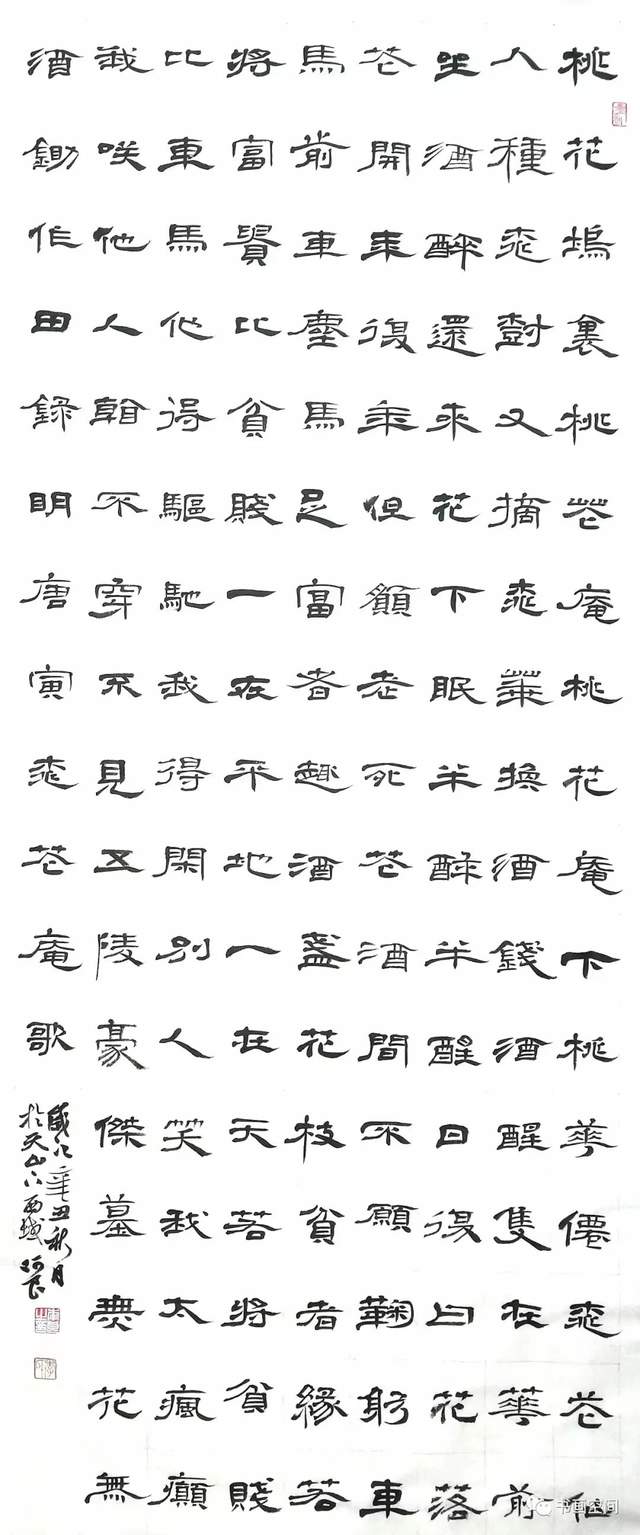 桃花塢裏桃花庵桃花庵下桃華僊桃花仙
人種桃樹又摘桃葉換酒錢酒醒隻在華前
坐酒醉還來花下眠半醉半醒日復日花落
花開年復年但願老死花酒間不願鞠躬車
馬前車塵馬足富者趣酒盞花枝貧者緣若
將富貴比貧賤一在平地一在天若將貧賤
比車馬他得驅馳我得閑別人笑我太瘋癲
我咲他人看不穿不見五陵豪傑墓無花無
酒鋤作田錄明唐寅桃花庵歌
歲次辛丑秋月
於天山下西域
书画空间